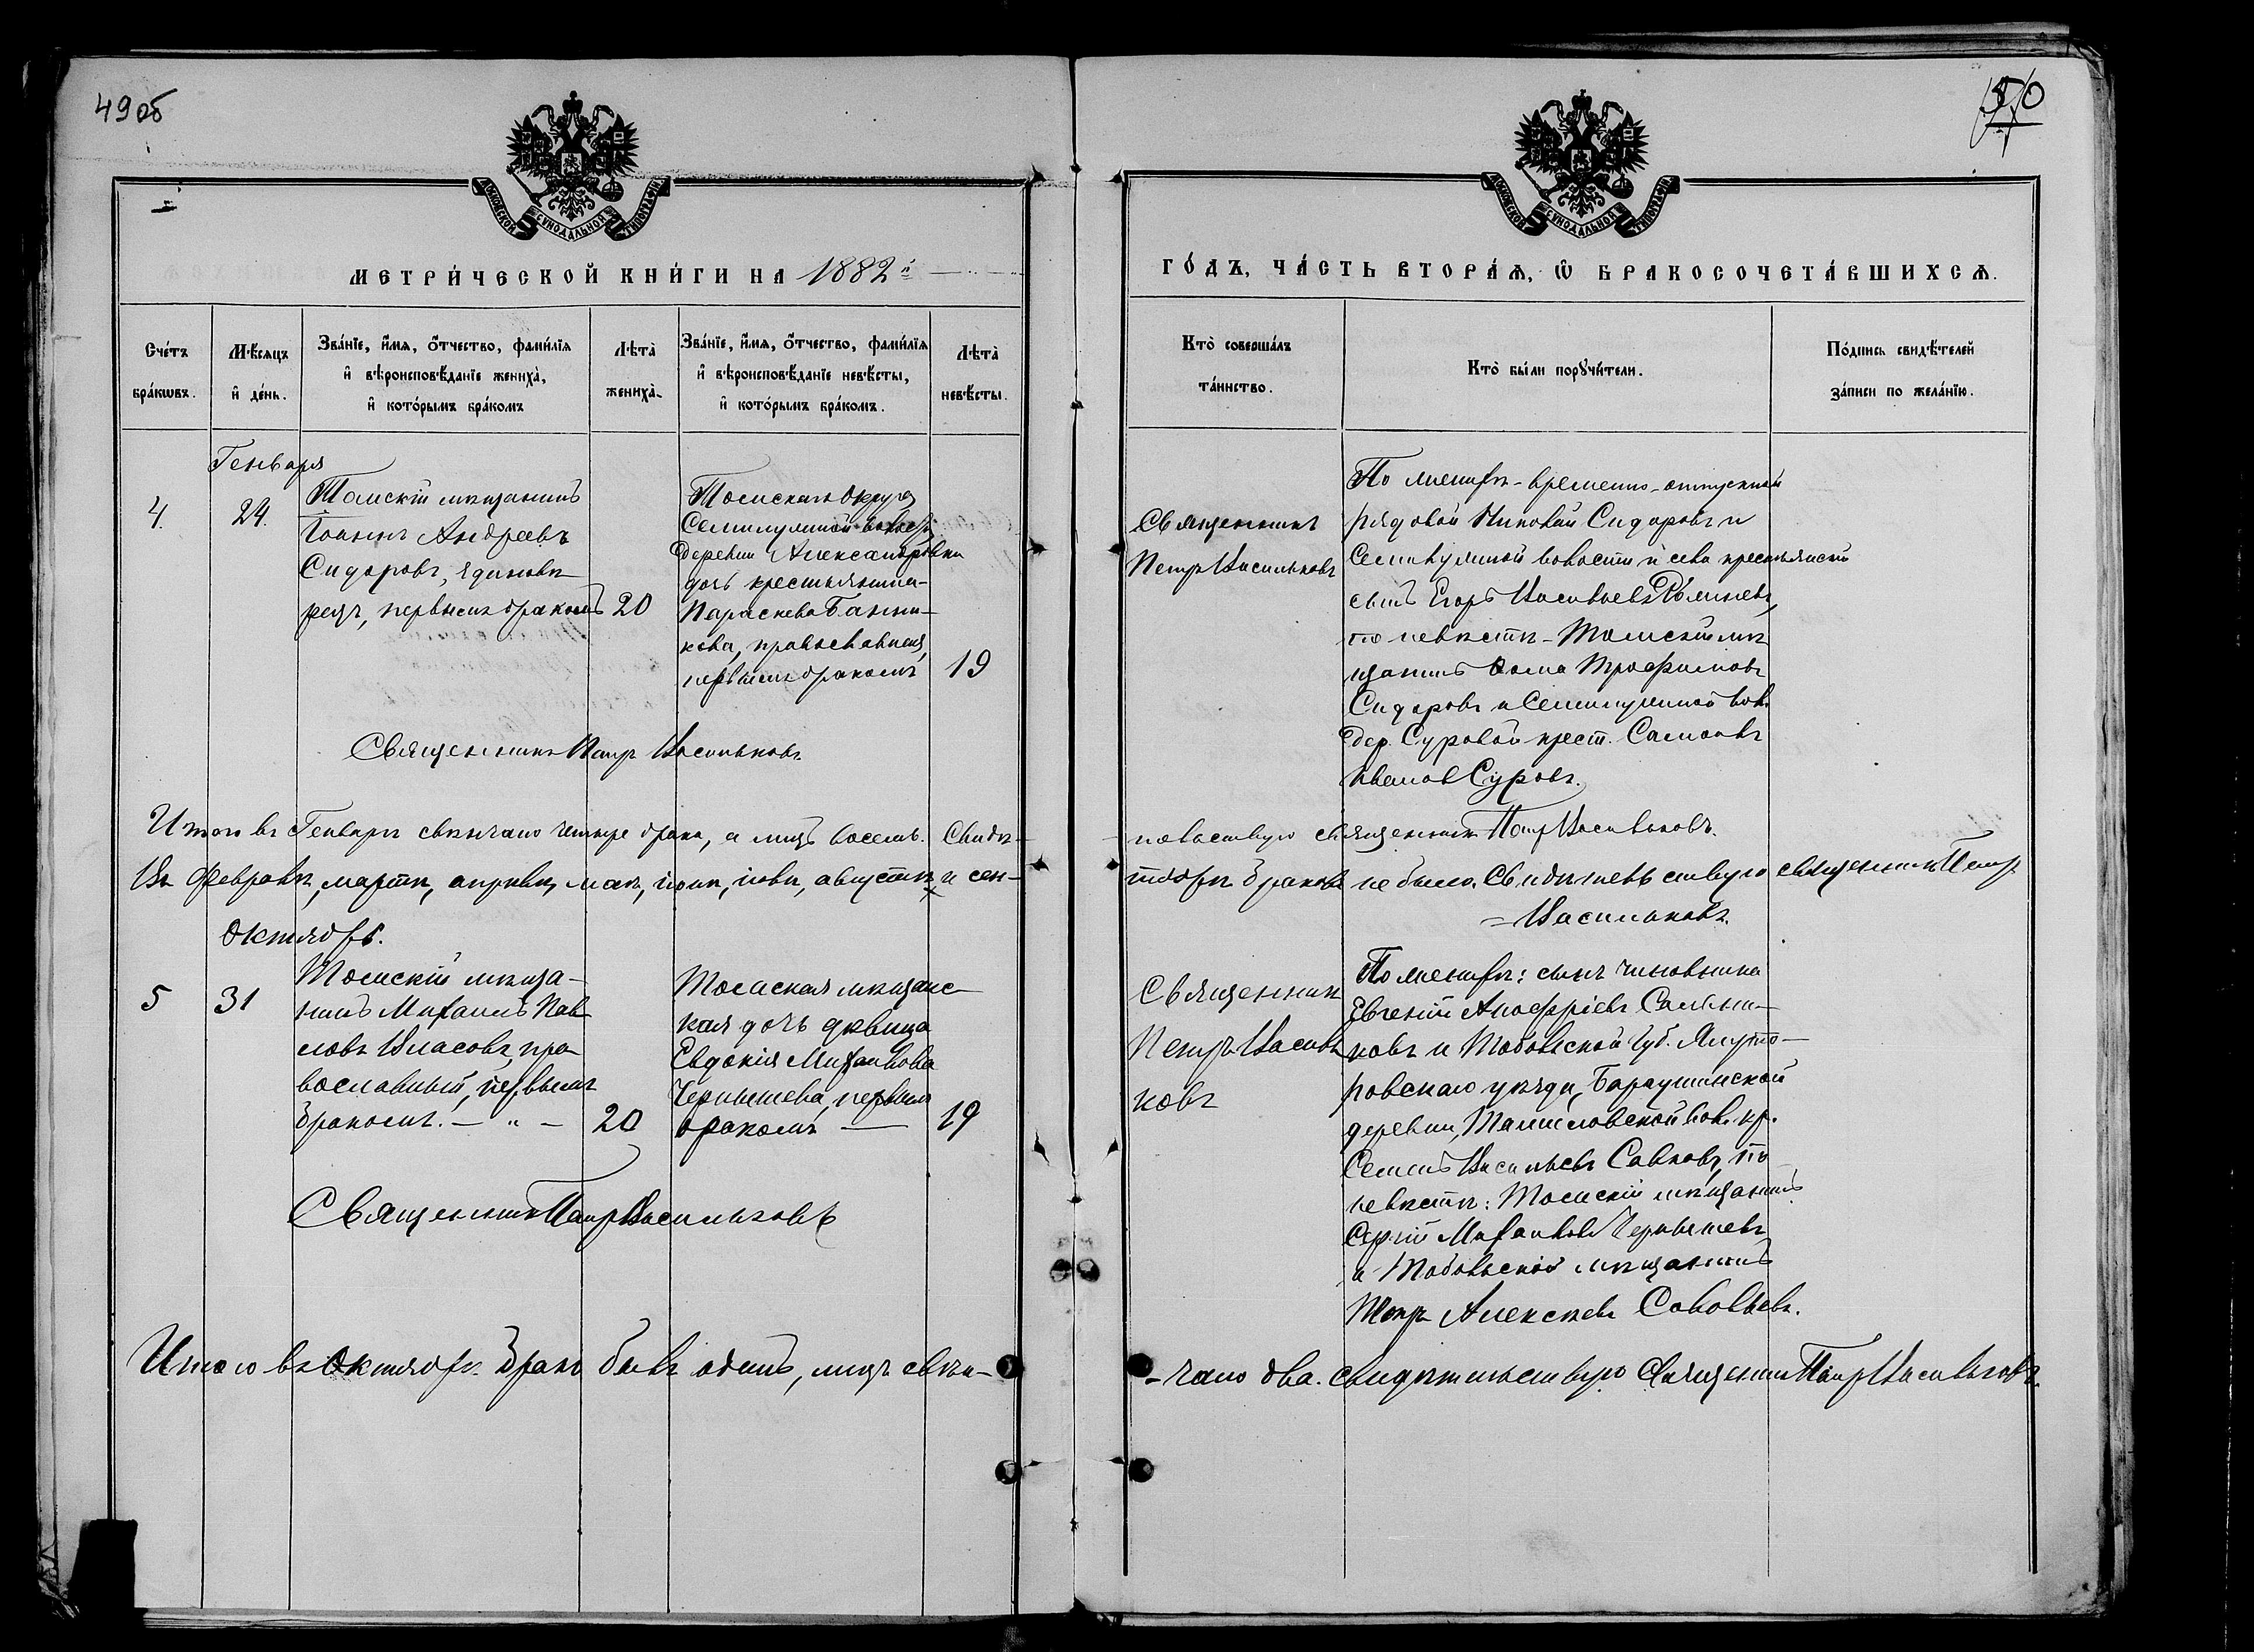 49 об
50
МОСКОВСКОЙ СѴНОДАЛЬНОЙ ТИПОГРАФІИ
МОСКОВСКОЙ СѴНОДАЛЬНОЙ ТИПОГРАФІИ
МЕТРИ́ЧЕСКОЙ КНИ́ГИ НА 1882й
ГО́ДЪ, ЧА́СТЬ ВТОРА́Ѧ, Ѡ҆ БРАКОСОЧЕТА́ВШИХСѦ.
Сче́тъ
бра́кѡвъ.
Мѣ́сяцъ
и҆ де́нь.
Зва́нїе, и҆́мѧ, ѻ҆́тчество, фами́лїѧ
и҆ вѣроисповѣ́данїе жениха̀,
и҆ кото́рымъ бра́комъ
Лѣ́та̀
жениха̀.
Зва́нїе, и҆́мѧ, ѻ҆́тчество, фами́лїѧ
и҆ вѣроисповѣ́данїе невѣ́сты,
и҆ кото́рымъ бра́комъ.
Лѣ́та̀
невѣ́сты.
Кто̀ соверша́лъ
та́инство.
Кто̀ бы́ли порꙋчи́тели.
По́дпись свидѣ́телей
за́писи по жела́нїю.
Генваря
4.
24.
Томскій мѣщанинъ
Іоаннъ Андреевъ
Сидоровъ, единовѣ
рецъ, первымъ бракомъ
20
Томскаго Округа
Семилужной волости
деревни Александровки
дочь крестьянина
Параскева Банни-
кова, православная,
первымъ бракомъ
19
Священникъ
Петръ Васильковъ
По женихѣ - временно-отпускной
рядовой Николай Сидоровъ и
Семилужной волости и села крестьянскій
сынъ Егоръ Васильевъ
по невѣстѣ - Томскій мѣ
щанинъ Ѳома Трофимовъ
Сидоровъ и Семилужной вол.
дер. Суровой крест.
Ивановъ Суровъ.
Священникъ Петръ Васильковъ
Итого въ Генварѣ свѣнчано четыре брака, а лицъ восемь. Свидѣ-
тельствую священникъ Петръ Васильковъ.
Въ Февралѣ, мартѣ, апрѣлѣ, маѣ, іюнѣ, іюлѣ, августѣ и сен-
тябрѣ браковъ не было. Свидѣтельствую священникъ Петръ
Васильковъ.
Октябрь.
5
31
Томскій мѣща-
нинъ Михаилъ Пав
ловъ Власовъ, пра
вославный, первымъ
бракомъ. — " —
20
Томская мѣщанс-
кая дочь дѣвица
Евдокія Михайлова
Чернышева, первымъ
бракомъ —
19
Священникъ
Петръ Василь
ковъ
По женихѣ: сынъ чиновника
Евгеній
ковъ и Тобольской Губ. Ялуто-
ровскаго уѣзда,
деревни, вол. кр.
Семенъ Васильевъ Савковъ, по
невѣстѣ: Томскій мѣщанинъ
Сергій Михайловъ Чернышевъ
и Тобольскій мѣщанинъ
Петръ Алексѣевъ Соловьевъ.
Священникъ Петръ Васильковъ
Итого въ Октябрѣ бракъ былъ одинъ, лицъ свѣн-
-чано два. Свидѣтельствую Священникъ Петръ Васильковъ.